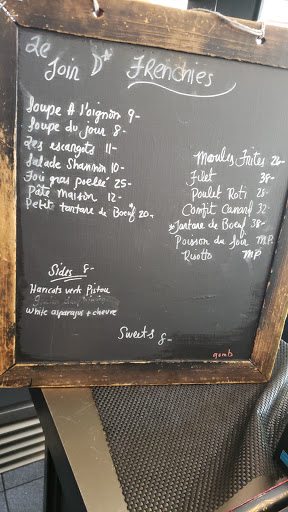 Le
Join D* Frenchies
Soupe A l'oignon 9-
Soupe du jour 8-
Les escargots 11-
Salade Shannon 10-
Foie gras poelée 25-
Pâté Maison 12-
Petit tartare de Boeuf 20-
Moules Frites 26-
Filet 38-
Poulet Roti 28-
Confit Canard 32
*Tartare de Boeuf 38-
Poisson du Soir M.P.
Risotto M.P
Sides 8-
Haricots verts Pistou
White asparagus + chevre
Sweets 8-